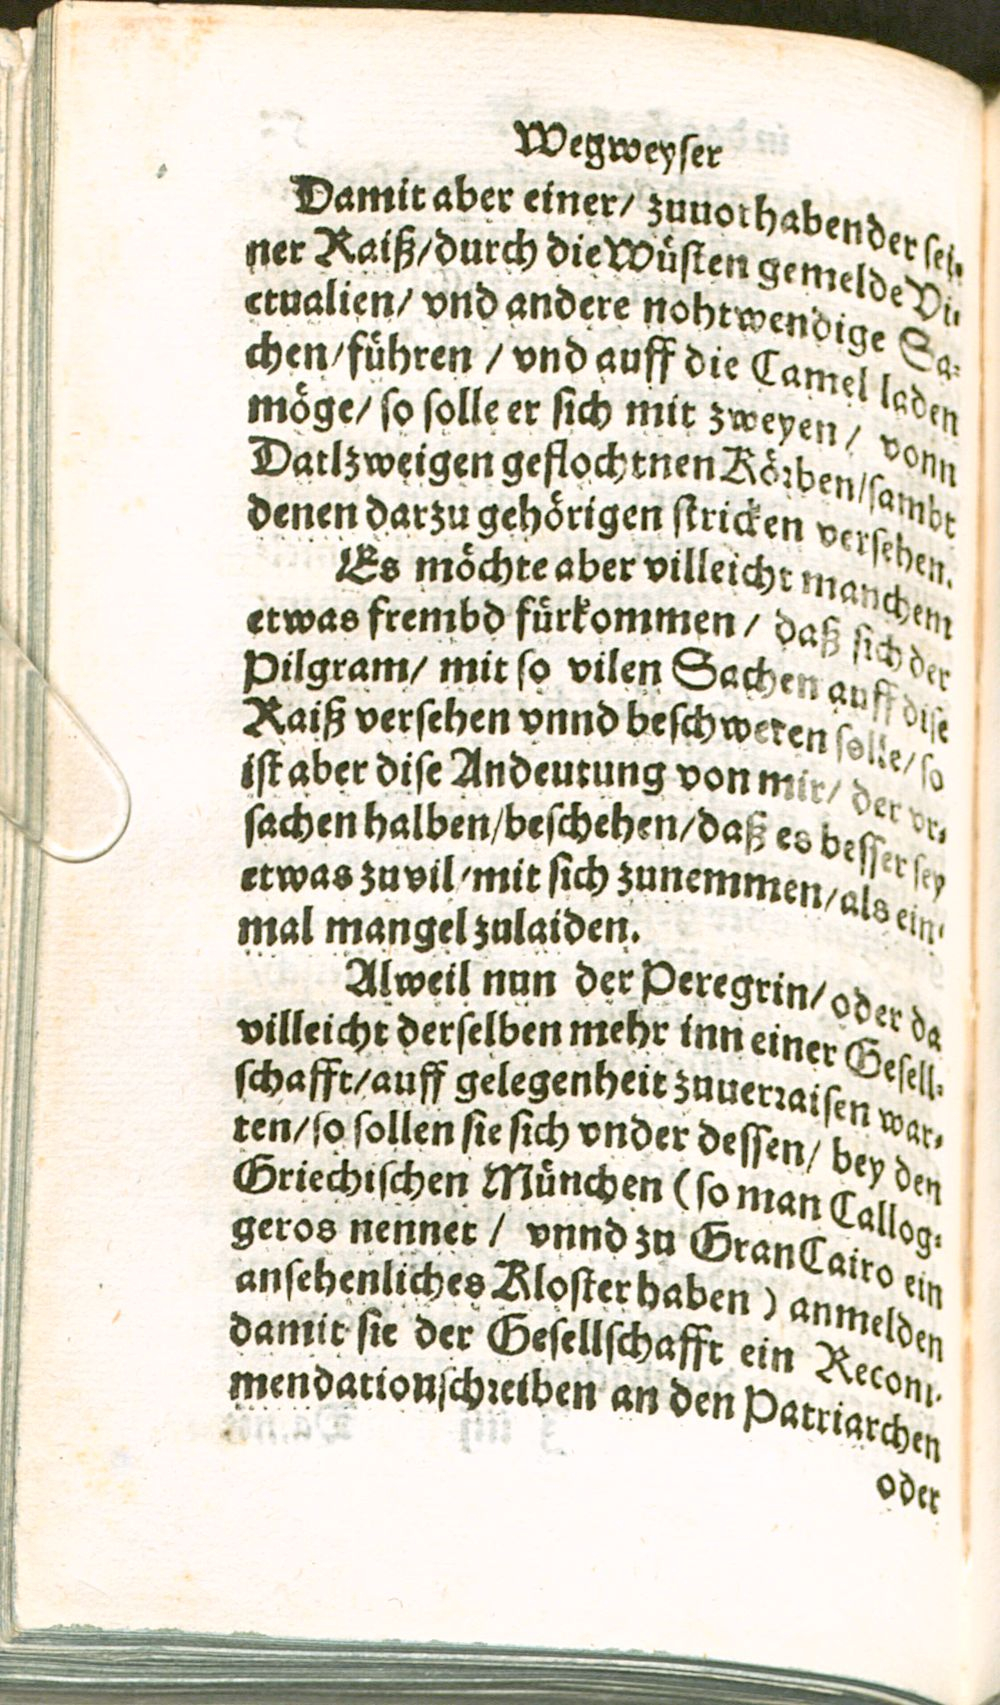 Wegweyser
Damit aber einer/ zuuor habender sei-
ner Raiß/durch die Wüsten gemelde Vi-
ctualien/ vnd andere nohtwendige Sa-
chen/führen / vnd auff die Camel laden
möge/ so solle er sich mit zweyen / vonn
Datlzweigen geflochtnen Körben/sambt
denen darzu gehörigen stricken versehen.
Es möchte aber villeicht manchem
etwas frembd fürkommen / daß sich der
Pilgram/ mit so vilen Sachen auff dise
Raiß versehen vnnd beschweren solle/ so
ist aber dise Andeutung von mir/ der vr-
sachen halben/beschehen/daß es besser sey
etwas zuvil/mit sich zunemmen/als ein-
mal mangel zulaiden.
Alweil nun der Peregrin/ oder da
villeicht derselben mehr inn einer Gesell-
schafft/auff gelegenheit zuuerraisen war-
ten/so sollen sie sich vnder dessen/ bey den
Griechischen München (so man Callog-
geros nennet / vnnd zu Gran Cairo ein
ansehenliches Kloster haben ) anmelden
damit sie der Gesellschafft ein Recom-
mendationschreiben an den Patriarchen
oder